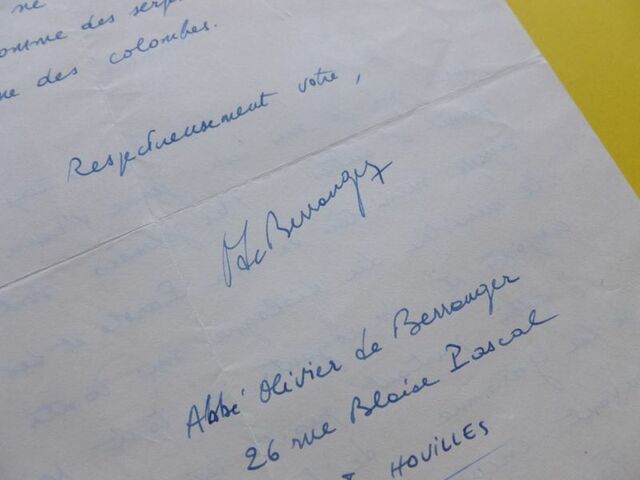 ne
comme des serp
me des colombes.
Respectueusement votre,
de Berranger
Abbé Olivier de Berranger
26 rue Blaise Pascal
HOUILLES